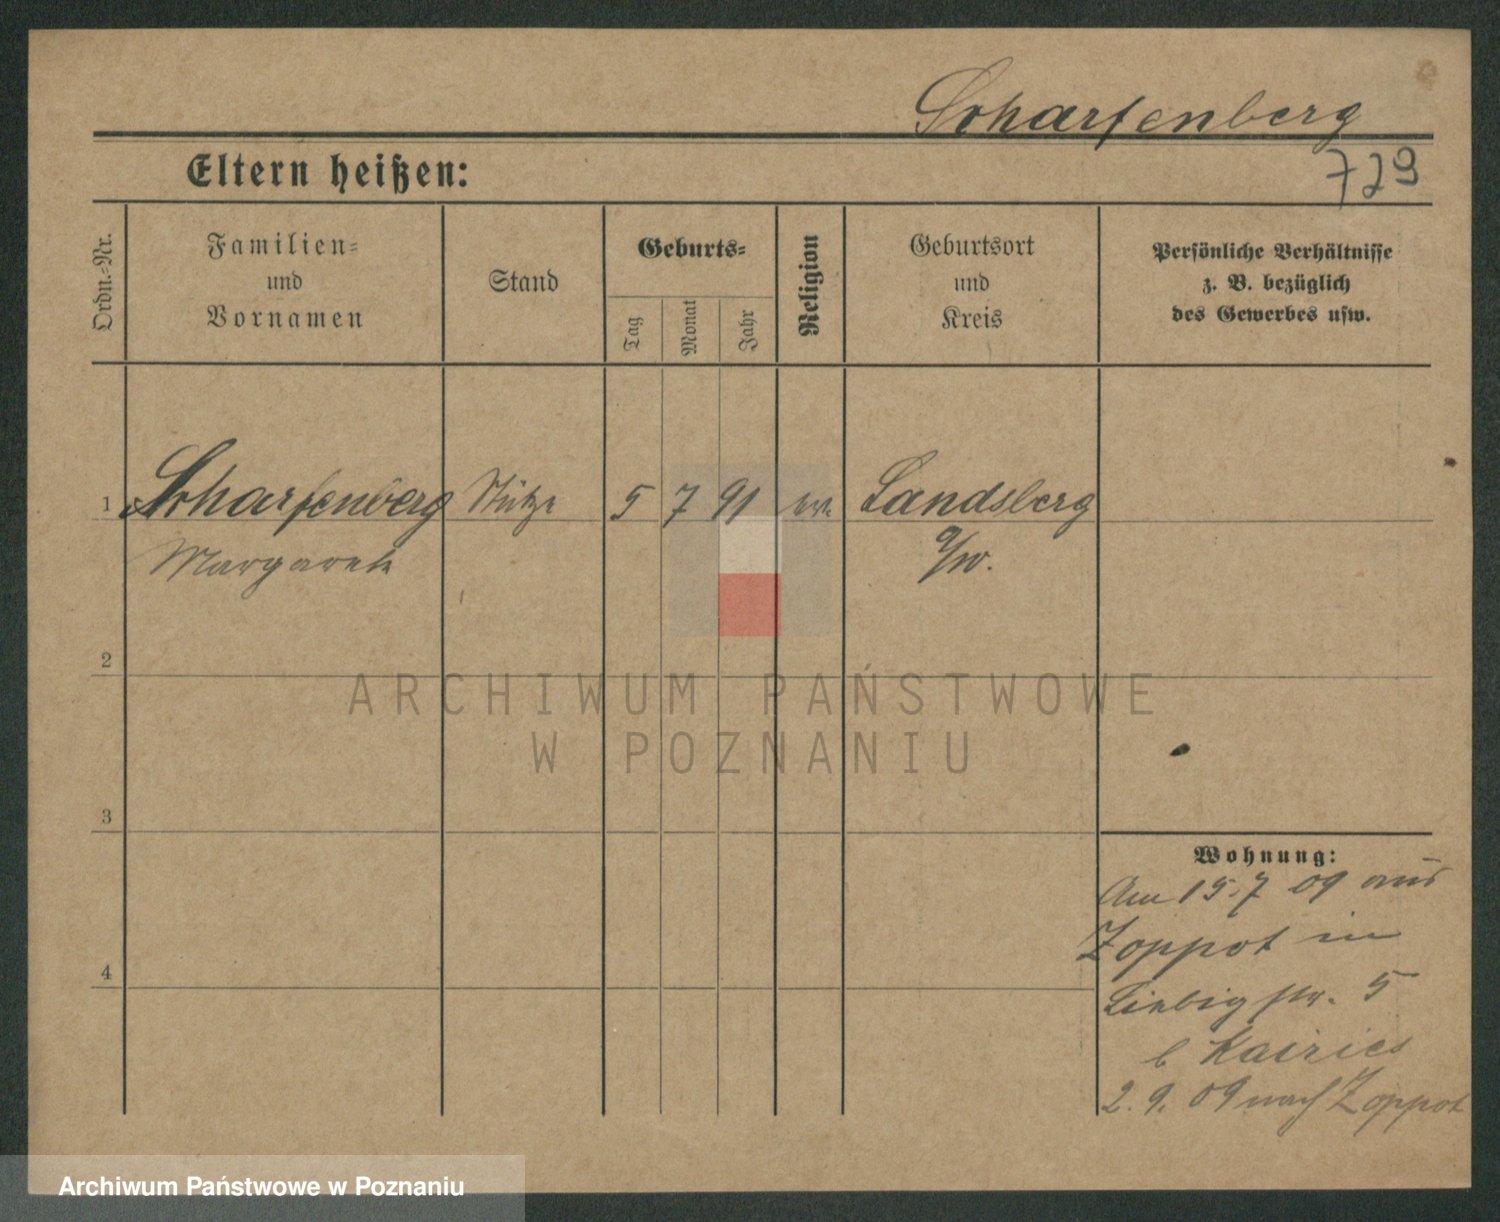 Scharfenberg
729
Eltern heißen:
Ordn.-Nr.
Familien-
und
Vornamen
Stand
Geburts-
Tag
Monat
Jahr
Religion
Geburtsort
und
Kreis
Persönliche Verhältnisse
z. B. bezüglich
des Gewerbes usw.
1 Scharfenberg Stütze 5 7 91 ev. Landsberg
Margarete a/W.
2
3
4
Wohnung:
Am 15.7 09 aus
Zoppot in
Liebigstr. 5
b Kairies
2. 9. 09 nach Zoppot
ARCHIWUM PAŃSTWOWE
W POZNANIU
Archiwum Państwowe w Poznaniu